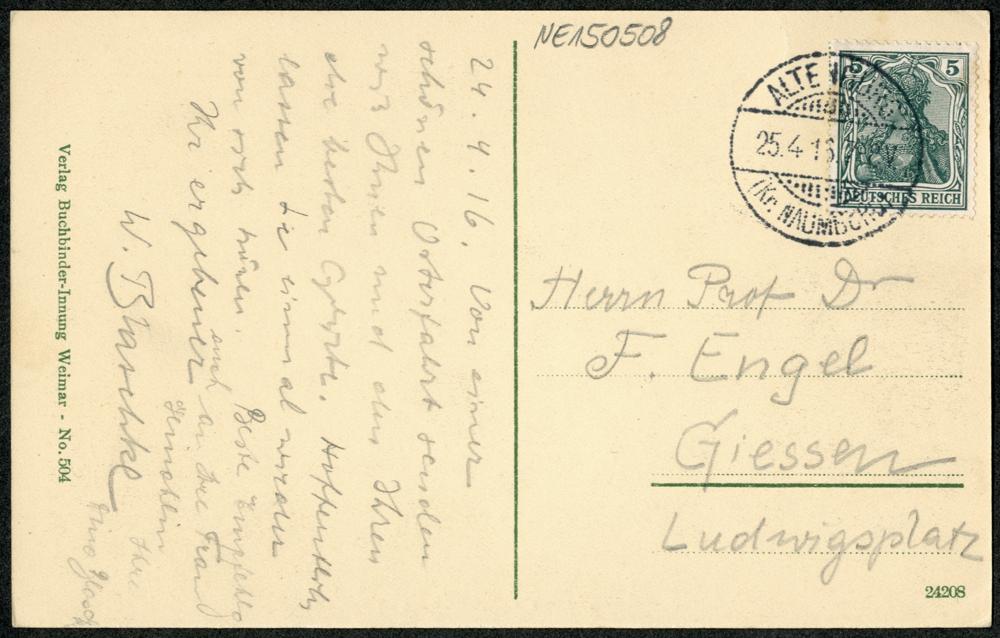 24. 4. 16. Von einer
schönen Osterfahrt senden
wir Ihnen und den Ihren
die besten Grüße. Hoffentlich
lassen Sie einmal wieder
von sich hören. Beste
Ihr ergebener
auch an Ihre Frau
Gemahlin
W. Blaschke
Ihre
Verlag Buchbinder-Innung Weimar - No. 504
NE150508
5 5
DEUTSCHES REICH
25.4 16
(Kr. NAUMBURG
Herrn Prof Dr
F. Engel
Giessen
Ludwigsplatz
24208